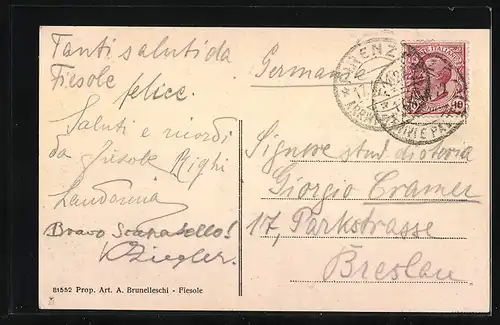 Tanti saluti da
Fiesole
felice.
Saluti e ricordi
da Fiesole Righi
Bravo Scarabello!
Ziegler.
81552 Prop. Art. A. Brunelleschi - Fiesole
Germania
FIRENZE
10
Signore stud
Giorgio Cramer
17, Parkstrasse
Breslau